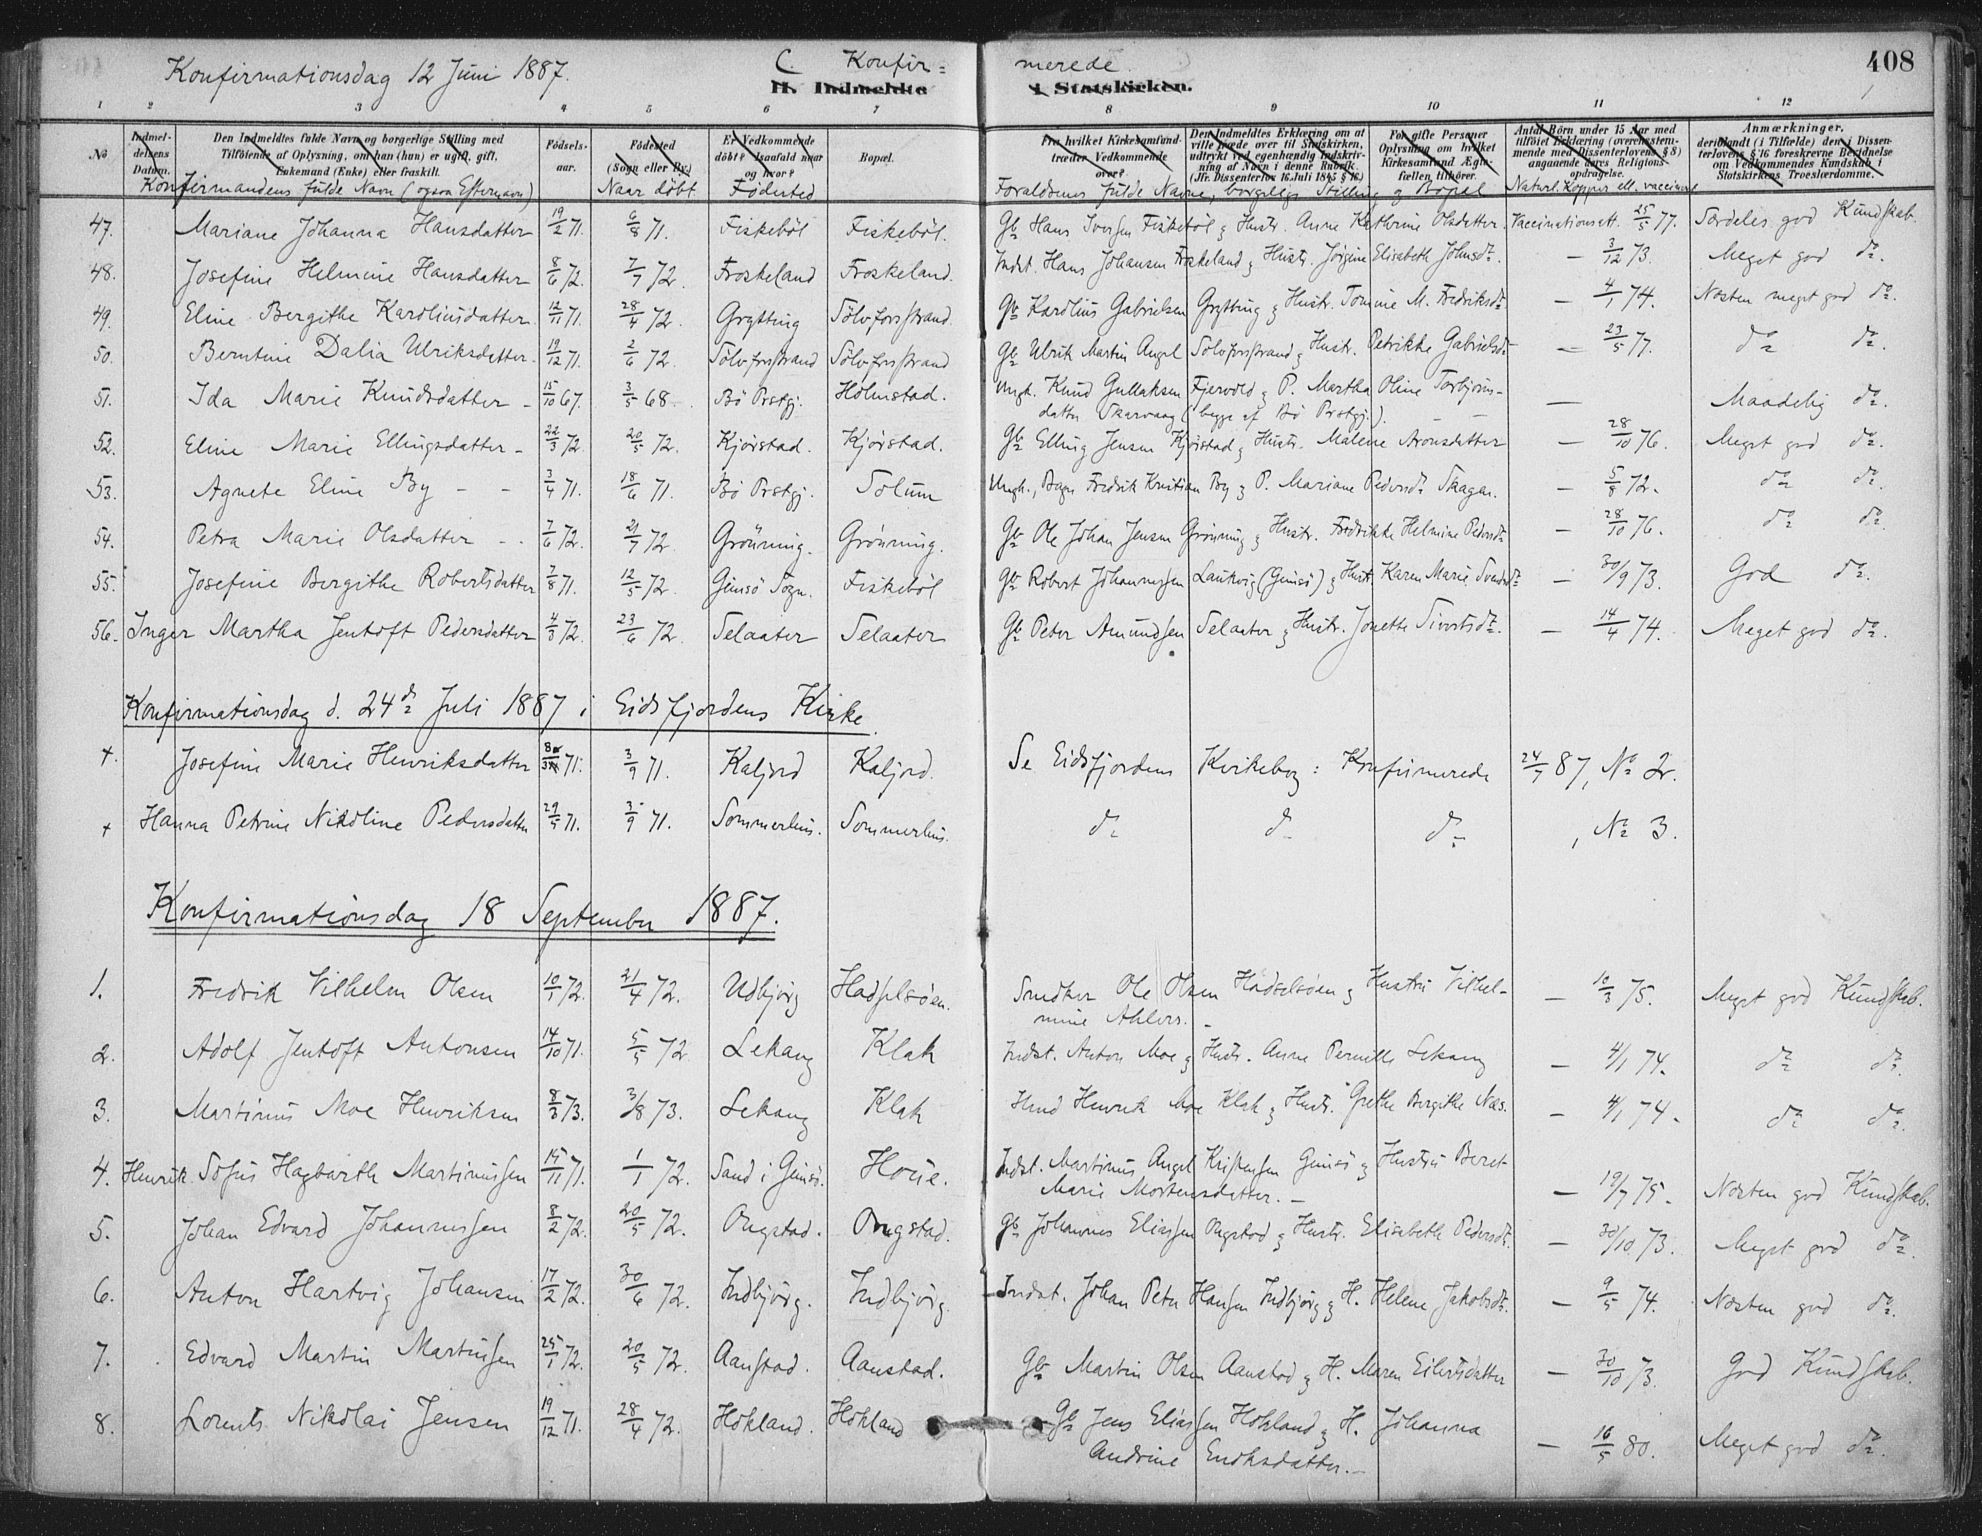 Konfirmationsdag 12 Juni 1887. C. Konfir= merede 408
II. Indmeldte i Statskirken.
1 2 3 4 5 6 7 8 9 10 11 12
No Indmeldelsens Datum. Den Indmeldtes fulde Navn og borgerlige Stilling med Tilføiende af Oplysning, om han (hun) er ugift, gift, Enkemand (Enke) eller fraskilt. Fødselsaar. Fødested (Sogn eller By.) Er Vedkommende døbt? Isaafald naar og hvor? Bopæl. Fra hvilket Kirkesamfund træder Vedkommende over? Den Indmeldtes Erklæring om at ville træde over til Statskirken, udtrykt ved egenhændig Indskrivning af Navn i denne Rubrik. (Jfr. Dissenterlov 16. Juli 1845 § 16) For gifte Personer Oplysning om hvilket Kirkesamfund Ægtefællen tilhører. Antal Børn under 15 Aar med tilføiet Erklæring (overensstemmende med Dissenterlovens § 8) angaaende deres Religionsopdragelse. Anmærkninger, deriblandt (i Tilfælde) den i Dissenterlovens § 16 foreskrevne Bevidnelse om Vedkommendes Kundskab i Statskirkens Troeslærdomme.
Konfirmandens fulde Navn (ogsaa Efternavn) Naar døbt Födested Forældrenes fulde Navne, borgerlige Stilling og Bopæl Naturl. Kopper ell. vaccineret
47. Mariane Johanna Hansdatter 19/2 71. 6/8 71. Fiskeböl Fiskeböl. Gb Hans Iversen Fiskeböl & Hustr. Anne Kathrine Olsdatter. Vaccinationsatt. 25/5 77. Særdeles god Kundskab.
48. Josefine Helmine Hansdatter 8/6 72. 7/7 72. Froskeland Froskeland. Indst. Hans Johansen Froskeland & Hustr. Jörgine Elisabeth Johnsdr. — 3/12 73. Meget god do.
49. Eline Bergithe Karoliusdatter 12/11 71. 28/4 72. Grytting Sölvforstrand. Gb Karolius Gabrielsen Grytting & Hustr. Tomine M. Fredriksdr. — 4/1 74. Næsten meget god do.
50. Berntine Dalia Ulriksdatter - 19/12 71. 2/6 72. Sölvforstrand Sölvforstrand Gb Ulrik Martin Angel Sölvforstrand & Hustr. Petrikke Gabrielsdr — 23/5 77. do do.
51. Ida Marie Knudsdatter - 15/10 67. 3/5 68. Bö Prstgj. Holmstad. Ungk. Knud Gullaksen Fjervold & P. Martha Oline Torbjörns-
datter Skarvaag (begge af Bö Prstgj.). — Maadelig do.
52. Eline Marie Ellingsdatter - 22/3 72. 20/5 72. Kjörstad. Kjörstad. Gb Elling Jensen Kjörstad & Hustr. Malene Aronsdatter — 28/10 76. Meget god do.
53. Agnete Eline By - - 3/4 71. 18/6 71. Bö Prstgj. Solum Ungk., Bager Fredrik Kristian By & P. Mariane Pedersdr Skagen. — 5/8 72. do do.
54. Petra Marie Olsdatter - - 7/6 72. 21/7 72. Grönning. Grönning. Gb Ole Johan Jensen Grönning & Hustr. Fredrikke Helmine Pedersdr — 28/10 76. do do.
55. Josefine Bergithe Robertsdatter 7/8 71. 12/5 72. Gimsö Sogn. Fiskeböl Gb Robert Johannessen Laukvig (Gimsö) & Hustr. Karen Marie Svendsdr — 30/9 73. God do.
56. Inger Martha Jentoft Pedersdatter 4/3 72. 23/6 72. Selaater Selaater Gb Peter Amundsen Selaater & Hustr. Jonette Sivertsdr. — 14/4 74. Meget god do.
Konfirmationsdag d. 24de Juli 1887 i Eidsfjordens Kirke.
+. Josefine Marie Henriksdatter 71. 3/9 71. Kaljord Kaljord. Se Eidsfjordens Kirkebog: Konfirmerede 24/7 87, No 2.
+ Hanna Petrine Nikoline Pedersdatter 29/5 71. 3/9 71. Sommerhus. Sommerhus. do do do , No 3.
Konfirmationsdag 18 September 1887.
1. Fredrik Vilhelm Olsen 10/1 72. 21/4 72. Udbjörg Hadselsöen. Snedker Ole Olsen Hadselsöen & Hustru Vilhel-
mine Ahlers. — 10/3 75. Meget god Kundskab.
2. Adolf Jentoft Antonsen 14/10 71. 5/5 72 Lekang Klak Indst. Anton Moe & Hustr. Anne Pernille Lekang — 4/1 74. do do.
3. Martinus Moe Henriksen 8/3 73. 3/8 73. Lekang Klak Henrik Moe Klak & Hustr. Grethe Bergithe Næs. — 4/1 74. do do.
4. Henrik Sofus Hagbarth Martinussen 15/11 71. 1/1 72. Sand i Gimsö. Indst. Martinus Angel Kristensen Gimsö & Hustru Beret
Marie Mortensdatter. — 19/7 75. Næsten god Kundskab.
5. Johan Edvard Johannessen 8/2 72. 20/5 72. Ongstad. Ongstad. Gb Johannes Eliassen Ongstad & Hustr. Elisabeth Pedersdr. — 30/10 73. Meget god do.
6. Anton Hartvig Johansen 17/2 72. 30/6 72. Indbjörg. Indbjörg. Indst. Johan Peter Hansen Indbjörg & H. Helene Jakobsdr. — 9/5 74. Næsten god do.
7. Edvard Martin Martinsen 25/1 72. 20/5 72. Aanstad. Aanstad. Gb Martin Olsen Aanstad & H. Maren Eilertsdatter — 30/10 73. God Kundskab.
8. Lorents Nikolai Jensen 19/12 71. 28/4 72. Hokland. Hokland Gb Jens Eliassen Hokland & H. Johanna
Andrine Endksdatter. — 16/5 80. Meget god do.